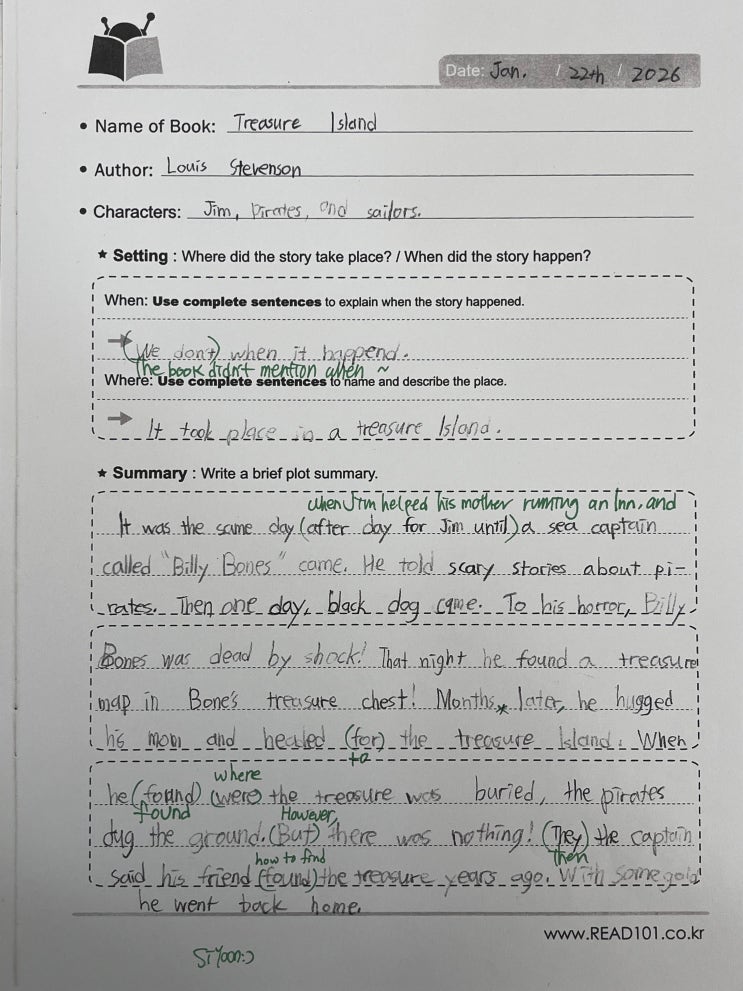 Date: Jan. / 22th / 2026
• Name of Book: Treasure Island
• Author: Louis Stevenson
• Characters: Jim, pirates, and sailors.
★ Setting : Where did the story take place? / When did the story happen?
When: Use complete sentences to explain when the story happened.
(We don't) when it happend.
The book didn't mention when ~
Where: Use complete sentences to name and describe the place.
It took place in a treasure Island.
★ Summary : Write a brief plot summary.
when Jim helped his mother running an Inn, and
It was the same day (after day for Jim until) a sea captain
called "Billy Bones" came. He told scary stories about pi-
rates. Then one day, black dog came. To his horror, Billy
Bones was dead by shock! That night he found a treasure
map in Bone's treasure chest! Months later, he hugged
his mom and headed (for) the treasure Island. When
to
where
he (found) (were) the treasure was buried, the pirates
found However,
dug the ground. (But) there was nothing! (They) the captain
how to find Then
said his friend (found) the treasure years ago. With some gold
he went back home.
www.READ101.co.kr